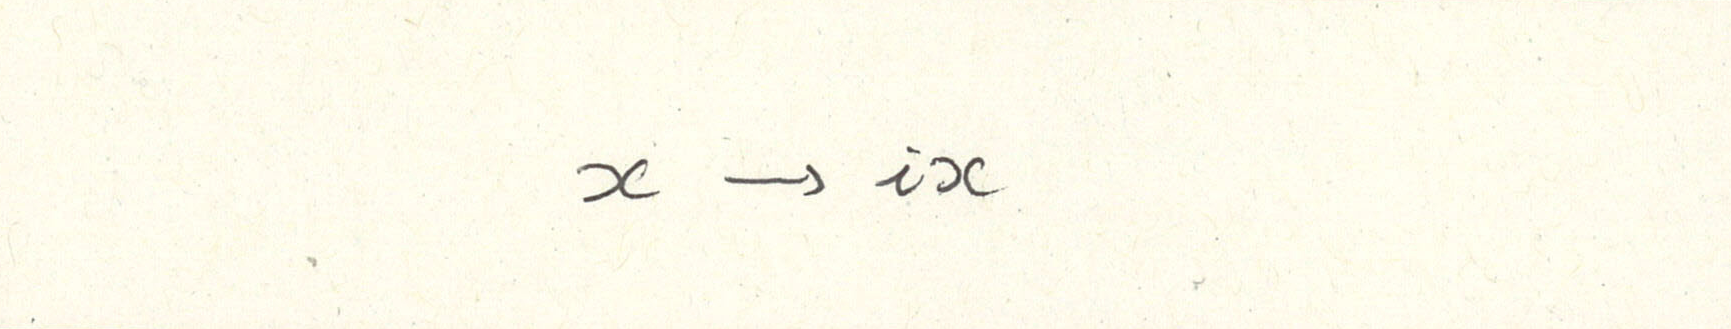 x → ix